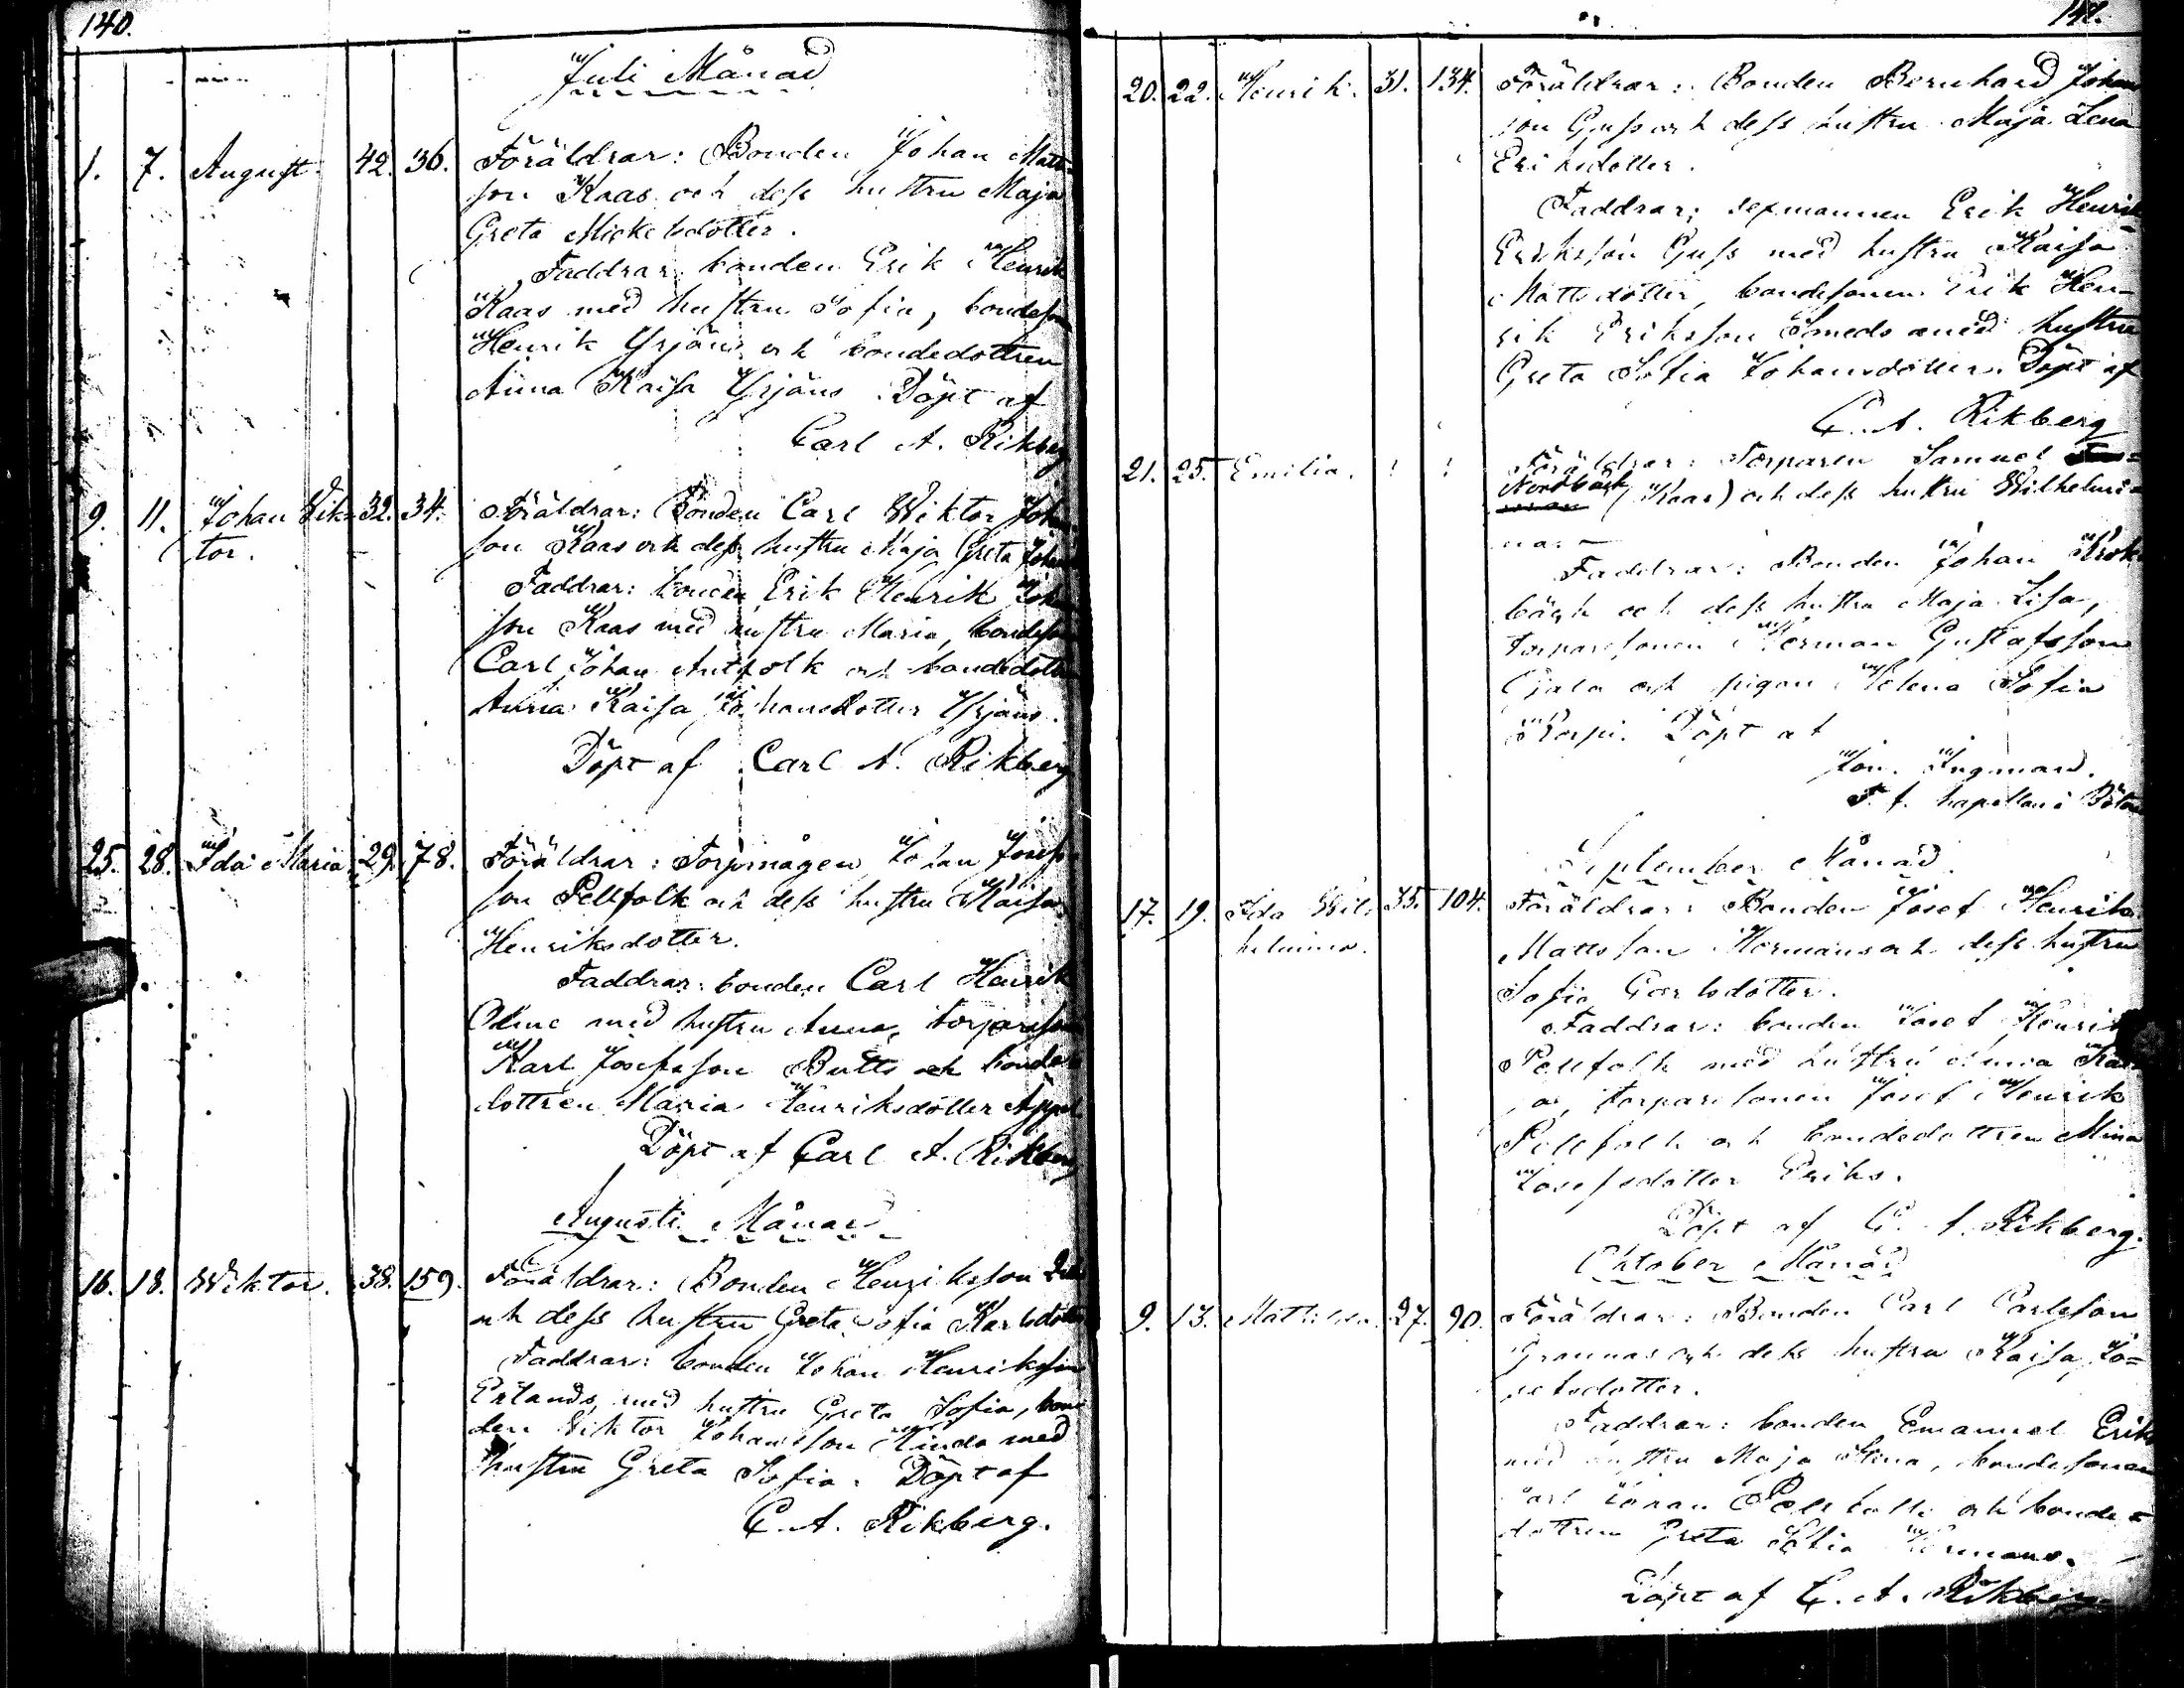 140.
Juli Månad
1. 7. August. 42. 36. Föräldrar: Bonden Johan Matts-
son Kaas och dess hustru Maja
Greta Mickelsdotter.
Faddrar: bonden Erik Henrik
Kaas med hustru Sofia, bondeson
Henrik Yrjäns och bondedottren
Anna Kaisa Yrjäns. Döpt af
Carl A. Rikberg
9. 11. Johan Vik- 32. 34. Föräldrar: Bonden Carl Wiktor Johans
tor. son Kaas och dess hustru Maja Greta Johans
Faddrar: bonden Erik Henrik Johan
son Kaas med hustru Maria, bondeson
Carl Johan Antfolk och bondedotter
Anna Kaisa Johansdotter Yrjäns.
Döpt af Carl A. Rikberg
25. 28. Ida Maria 29. 78. Föräldrar: Torpmågen Johan Josefs
son Pellfolk och dess hustru Kaisa
Henriksdotter.
Faddrar: bonden Carl Henrik
med hustru Anna, torpareson
Karl Josefsson Butts och bonde
dottren Maria Henriksdotter Appel
Döpt af Carl A. Rikberg
Augusti Månad
16. 18. Wiktor. 38. 159. Föräldrar: Bonden Henriksson
och dess hustru Greta Sofia Karlsdotter
Faddrar: bonden Johan Henriksson
Erlands med hustru Greta Sofia, bon
den Viktor Johansson Kinda med
hustru Greta Sofia. Döpt af
C. A. Rikberg.
141.
20. 22. Henrik. 31. 134. Föräldrar: Bonden Bernhard Johans
son Guss och dess hustru Maja Lena
Eriksdotter.
Faddrar: sexmannen Erik Henrik
Eriksson Guss med hustru Kaisa
Mattsdotter, bondesonen Erik Hen-
rik Eriksson Smeds med hustru
Greta Sofia Johansdotter. Döpt af
C. A. Rikberg
21. 25. Emilia. Föräldrar: Torparen Samuel
Nordbäck (Kaas) och dess hustru Wilhelmi-
na.
Faddrar: Bonden Johan Krok
bäck och dess hustru Maja Lisa,
torparesonen Herman Gustafsson
och pigan Helena Sofia
Korpi. Döpt af
Jon. Ingman.
T. f. kapellan i
September Månad
17. 19. Ida Wil- 35. 104. Föräldrar: Bonden Josef Henrik
helmina. Mattsson Hermans och dess hustru
Sofia Carlsdotter.
Faddrar: bonden Josef Henrik
Pellfolk med hustru Anna Kai
sa, torparesonen Josef Henrik
Pellfolk och bondedottren Mina
Josefsdotter Eriks.
Döpt af C. A. Rikberg.
Oktober Månad
9. 13. Mathilda 27. 90. Föräldrar: Bonden Carl Carlsson
Grannas och dess hustru Kaisa Jo-
sefsdotter.
Faddrar: bonden Emanuel Eriks
med hustru Maja Stina, bondesonen
Carl Johan Pellfolk och bonde-
dottren Greta Sofia Hermans.
Döpt af C. A. Rikberg